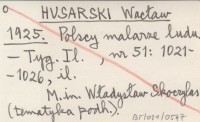 HUSARSKI Wacław
1925. Polscy malarze ludu.
— Tyg. Il., nr 51: 1021-
-1026, il.
M.in. Władysław Skoczylas
(tematyka podh.).